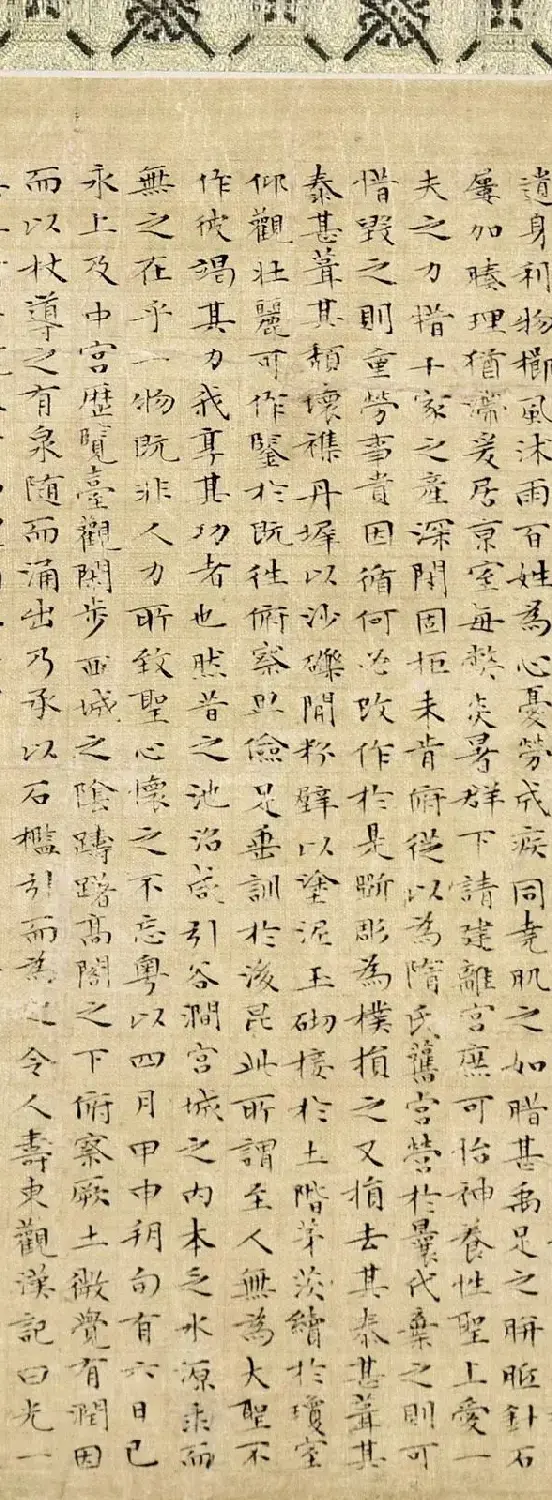 遺身利物櫛風沐雨百姓為心憂勞成疾同堯肌之如腊甚禹足之胼胝針石
屢加腠理猶滯爰居京室每弊炎暑群下請建離宮庶可怡神養性聖上愛一
夫之力惜十家之產深閉固拒未肯俯從以為隋氏舊宮營於曩代棄之則可
惜毀之則重勞事貴因循何必改作於是斲彫為樸損之又損去其泰甚葺其
泰甚葺其頹壞雜丹墀以沙礫間粉壁以塗泥玉砌接於土階茅茨續於瓊室
仰觀壯麗可作鑒於既往俯察卑儉足垂訓於後昆此所謂至人無為大聖不
作彼竭其力我享其功者也然昔之池沼咸引谷澗宮城之內本乏水源求而
無之在乎一物既非人力所致聖心懷之不忘粵以四月甲申朔旬有六日己
亥上及中宮歷覽臺觀閑步西城之陰躊躇高閣之下俯察厥土微覺有潤因
而以杖導之有泉隨而涌出乃承以石檻引而為令人壽東觀漢記曰光一